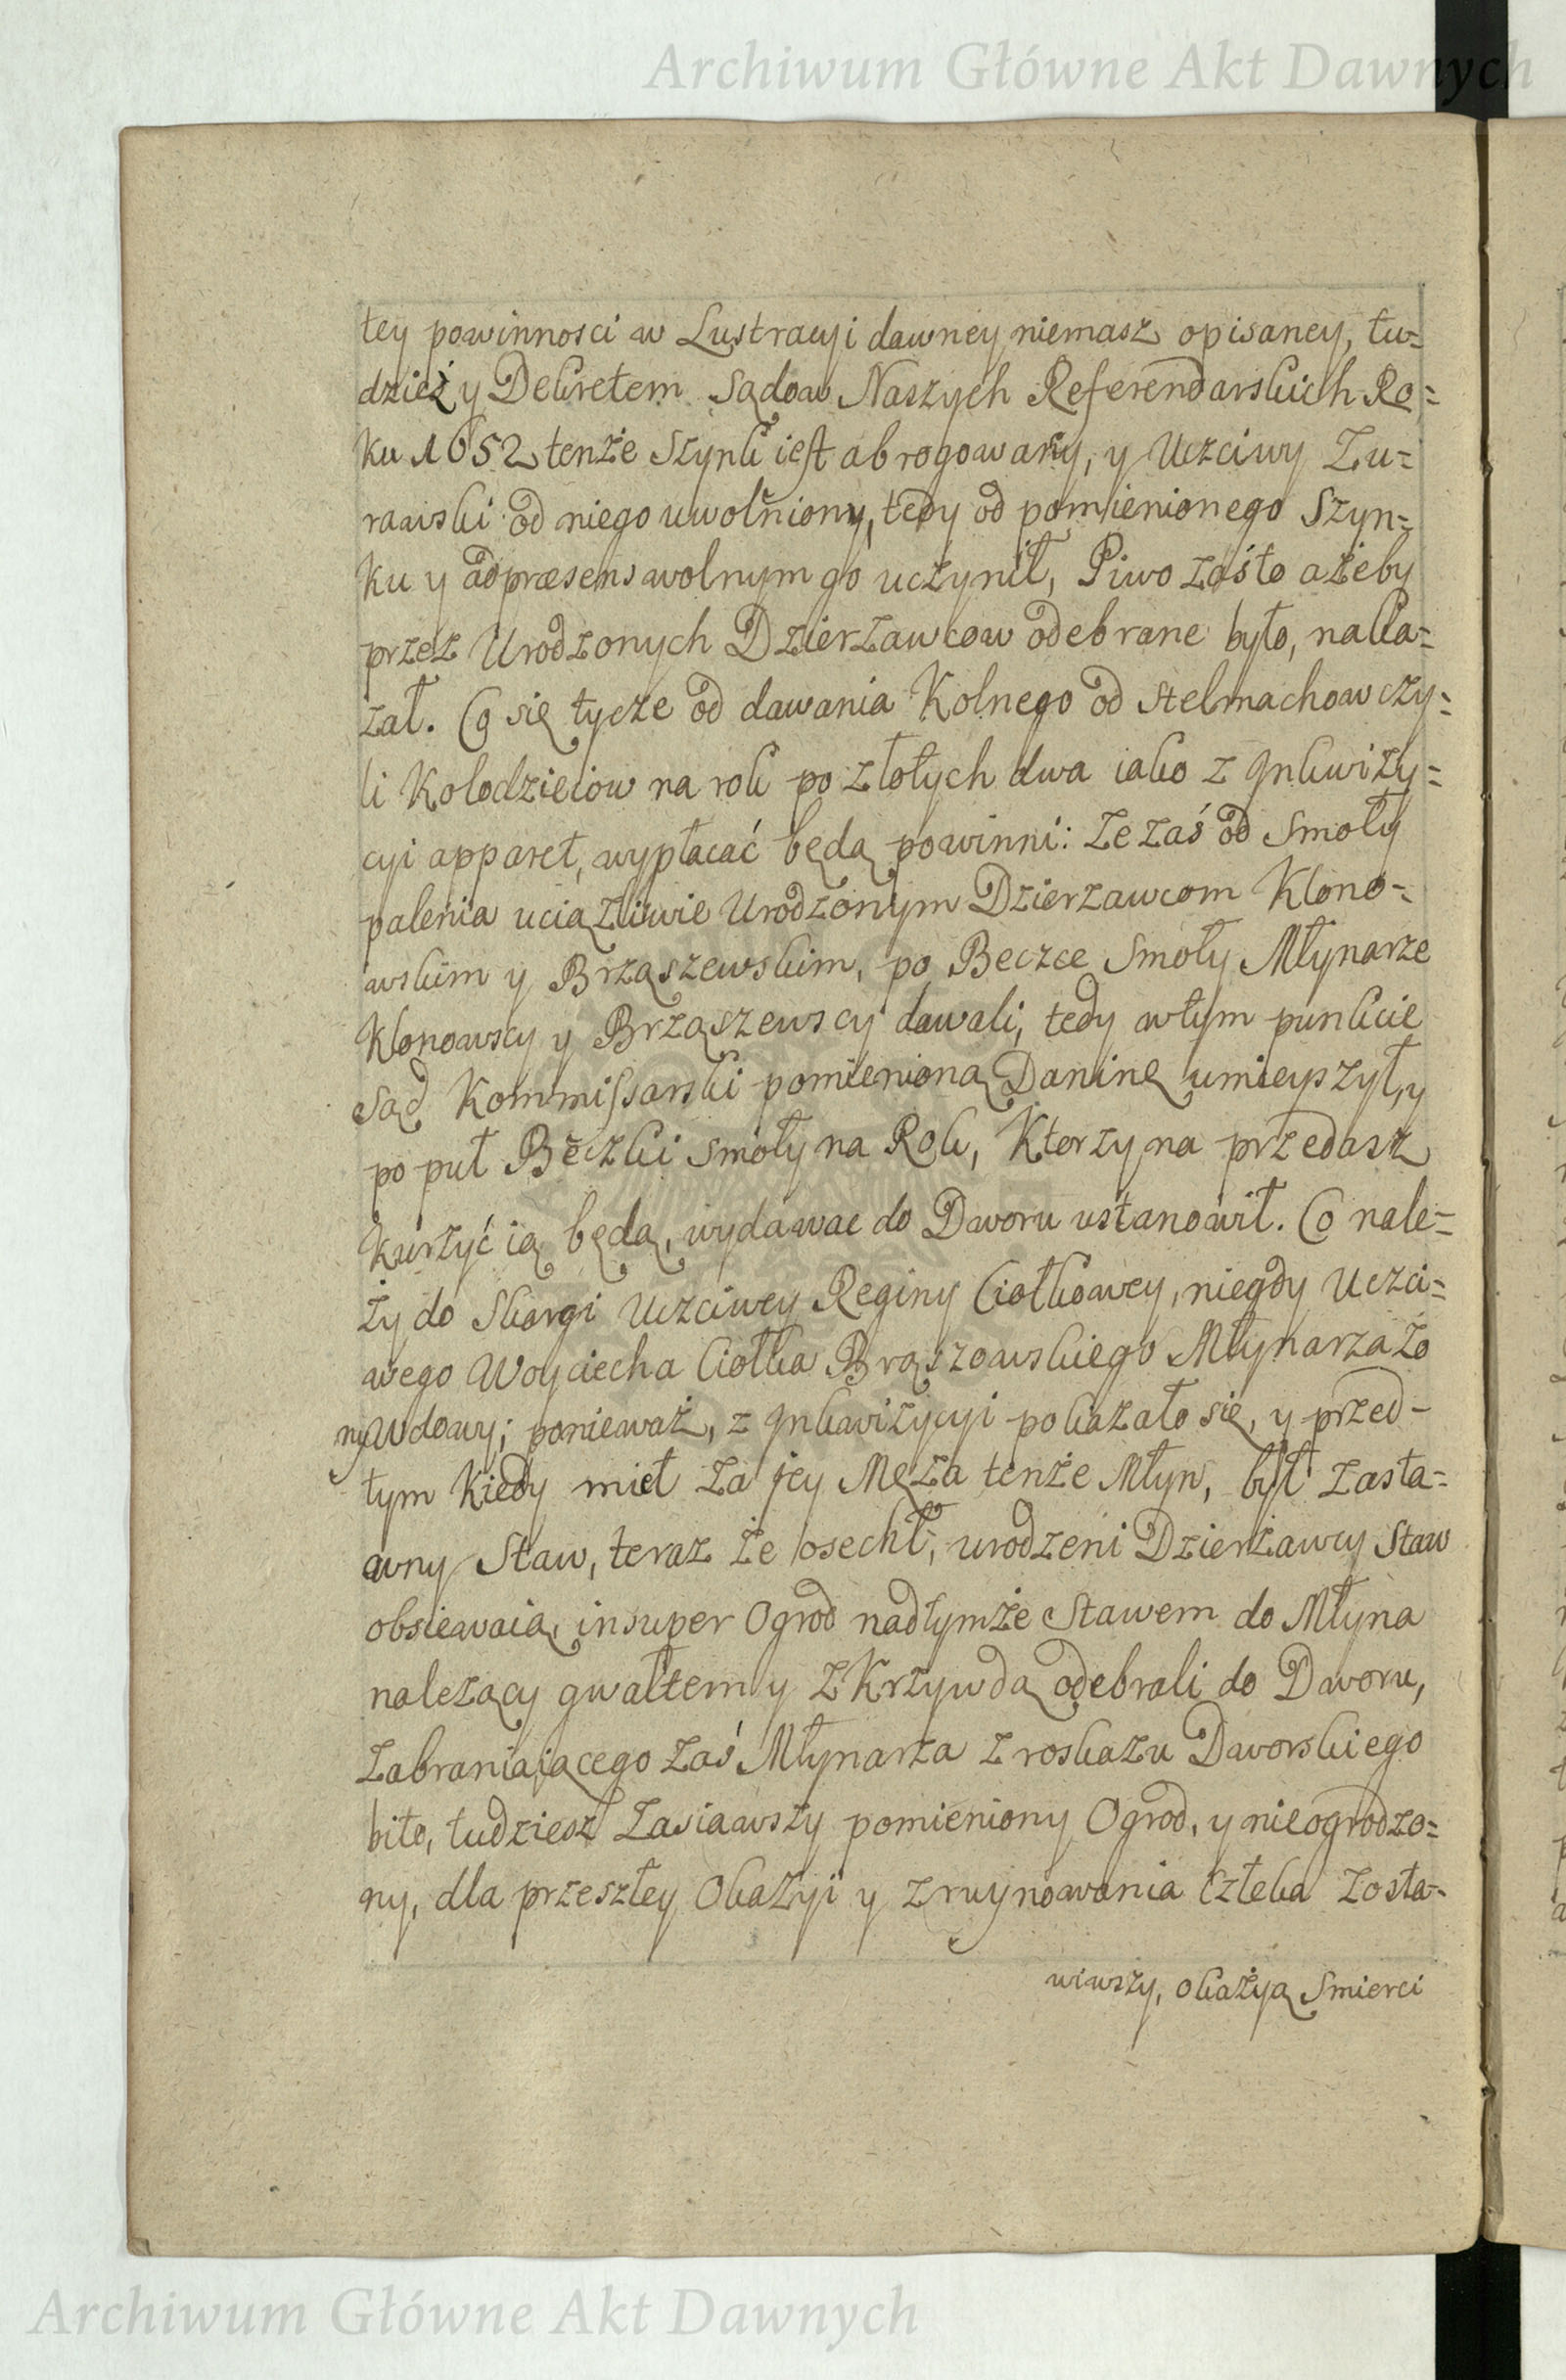 Archiwum Główne Akt Dawnych
tey powinnosci w Lustracyi dawney niemasz opisaney, tu=
dzież y Dekretem Sądow Naszych Referendarskich Ro=
ku 1652 tenże Szynk iest abrogowany, y Uczciwy Zu=
rawski od niego uwolniony, tedy od pomienionego Szyn=
ku y adpræsens wolnym go uczynił, Piwo zaśto ażeby
przez Urodzonych Dzierzawcow odebrane było, naka=
zał. Co się tycze od dawania Kolnego od Stelmachow czy=
li Kołodzieiow na rok po złotych dwa iako z Inkwizy=
cyi apparet, wypłacać będą powinni: Ze zaś od Smoły
palenia uciązliwie Urodzonym Dzierzawcom Klono=
wskim y Brząszewskim, po Beczce Smoły Młynarze
Klonowscy y Brząszewscy dawali, tedy wtym punkcie
Sąd Kommissarski pomienioną Daninę umieyszył, y
po puł Beczki Smoły na Rok, Ktorzy na przedasz
kurzyć ią będą, wydawac do Dworu ustanowił. Co nale=
ży do Skargi Uczciwey Reginy Ciołkowey, niegdy Uczci=
wego Woyciecha Ciołka Brąszowskiego Młynarza Zo
ny Wdowy; ponieważ, z Inkwizycyi pokazało się, y przed=
tym kiedy miel za jey Męza tenże Młyn, był zasta=
wny Staw, teraz że osechł, urodzeni Dzierżawcy Staw
obsiewaią, insuper Ogrod nadtymże Stawem do Młyna
należący gwałtem y z Krzywdą odebrali do Dworu,
Zabraniającego zaś Młynarza z roskazu Dworskiego
bito, tudziesz Zasiawszy pomieniony Ogrod, y nieogrodzo=
ny, dla przeszłey Okazyi y zruynowania Człeka zosta=
wiwszy, okażyą Smierci
Archiwum Główne Akt Dawnych